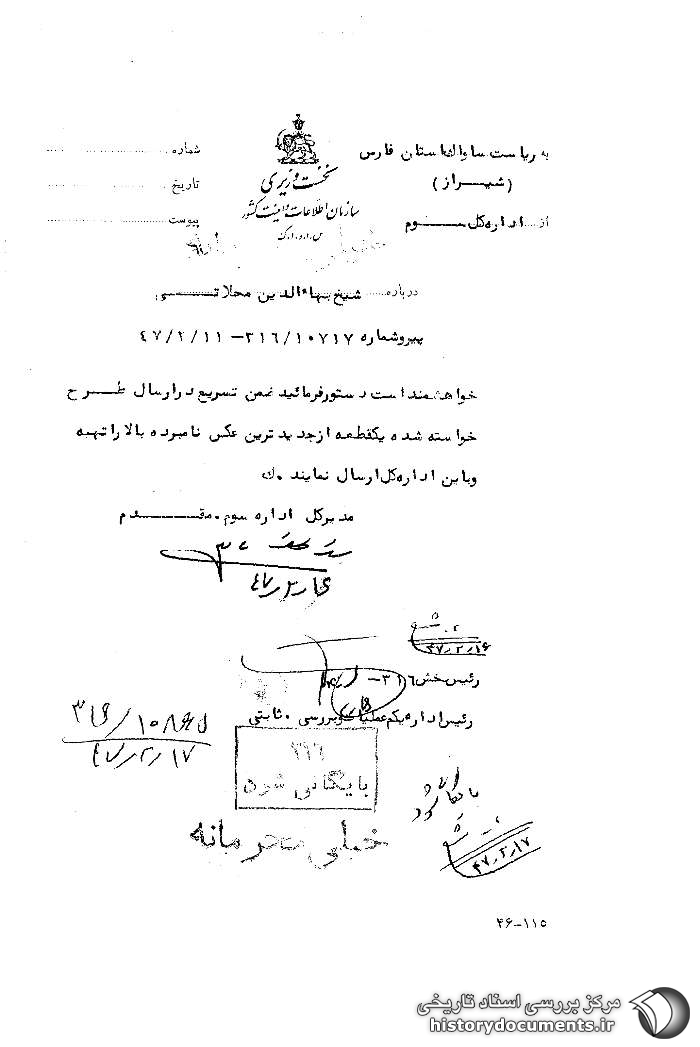 به ریاست ساواک استان فارس
(شیراز)
از اداره کل سوم
نخست وزیری
سازمان اطلاعات و امنیت کشور
س.ا.و.ا.ک
شماره
تاریخ
پیوست
درباره شیخ بهاءالدین محلاتی
پیرو شماره ۳۱۶/۱۰۷۱۷ - ۴۷/۲/۱۱
خواهشمند است دستور فرمائید ضمن تسریع در ارسال طرح
خواسته شده یکقطعه از جدیدترین عکس نامبرده بالا را تهیه
و باین اداره کل ارسال نمایند . ك
مدیر کل اداره سوم . مقدم
۴۷/۲/۱۶
رئیس بخش ۳۱۶ -
رئیس اداره یکم عملیات و بررسی . ثابتی
۴۷/۲/۱۷
۳۱۶
بایگانی شود
خیلی محرمانه
بایگانی شود
۴۷/۲/۱۷
۴۶-۱۱۵
مرکز بررسی اسناد تاریخی
historydocuments.ir